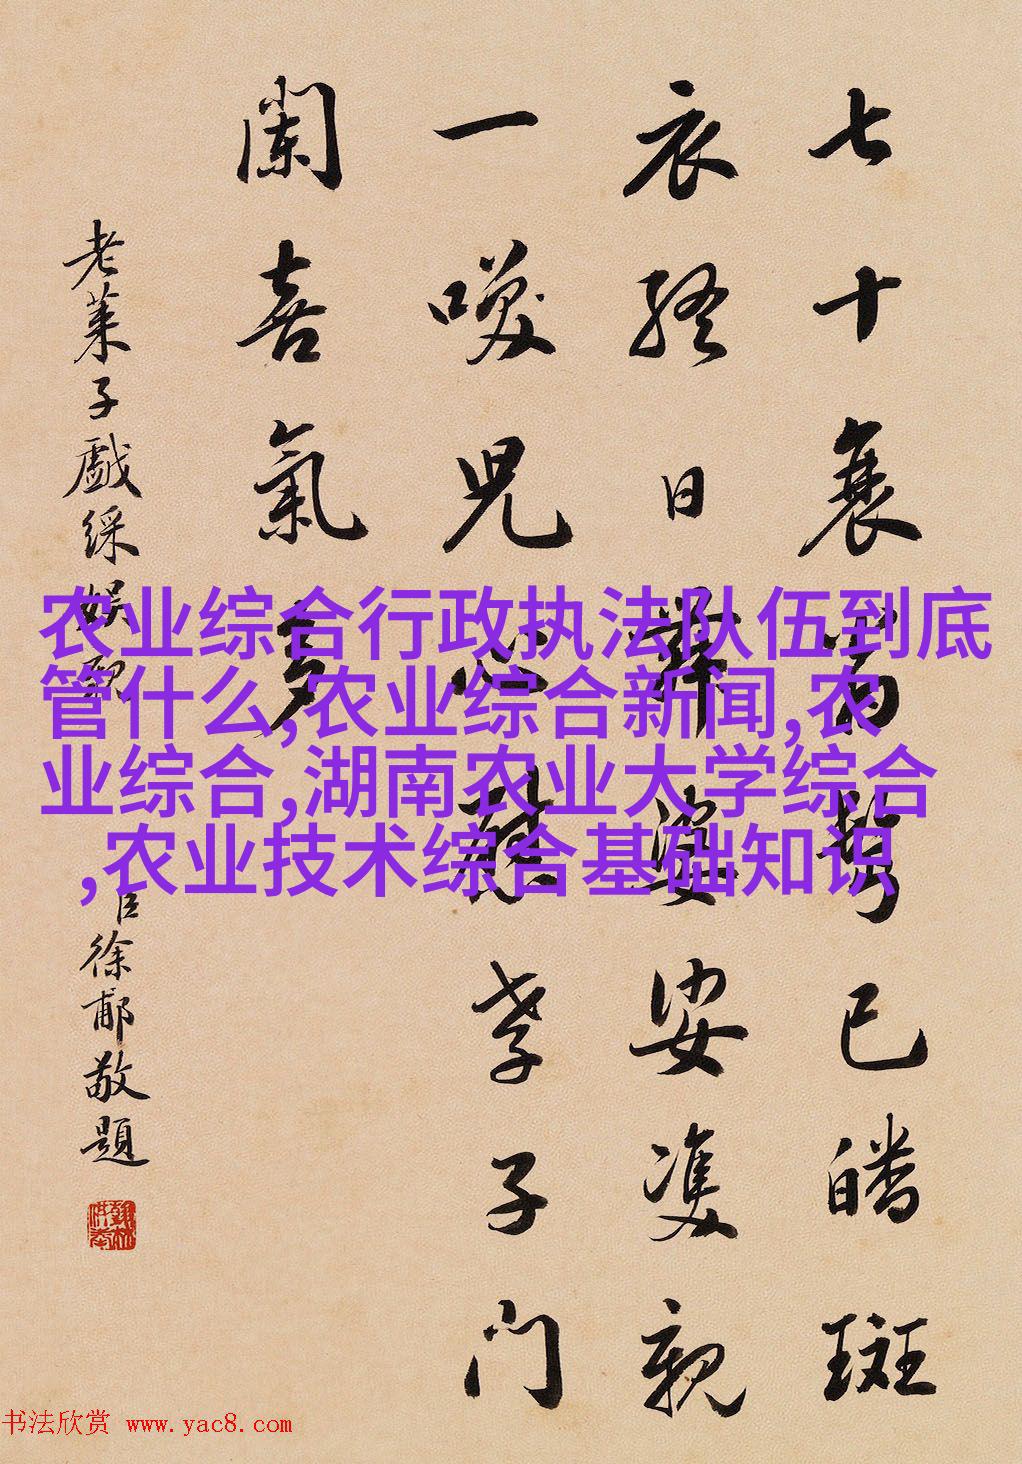 七十衰鬢已皤斑
衣終日舞婆娑雙親
一兒心慰孝子門
闌喜氣多
老萊子戲綵娱親
臣徐郙敬題
农业综合行政执法队伍到底
管什么,农业综合新闻,农
业综合,湖南农业大学综合
,农业技术综合基础知识
书法欣赏 www.yac8.com